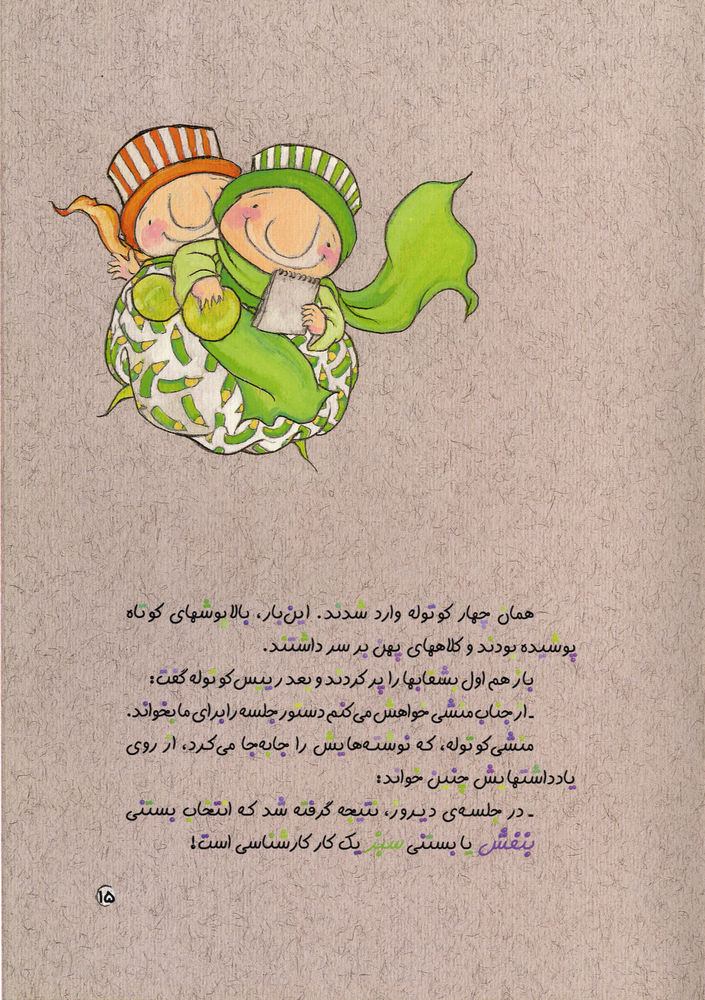 همان چهار کوتوله وارد شدند. این‌بار، بالاپوشهای کوتاه
پوشیده بودند و کلاههای پهن بر سر داشتند.
باز هم اول بشقابها را پر کردند و بعد رییس کوتوله گفت:
ـ از جناب منشی خواهش می‌کنم دستور جلسه را برای ما بخواند.
منشی کوتوله، که نوشته‌هایش را جابه‌جا می‌کرد، از روی
یادداشتهایش چنین خواند:
ـ در جلسه‌ی دیروز، نتیجه گرفته شد که انتخاب بستنی
بنفش یا بستنی سبز یک کار کارشناسی است!
۱۵